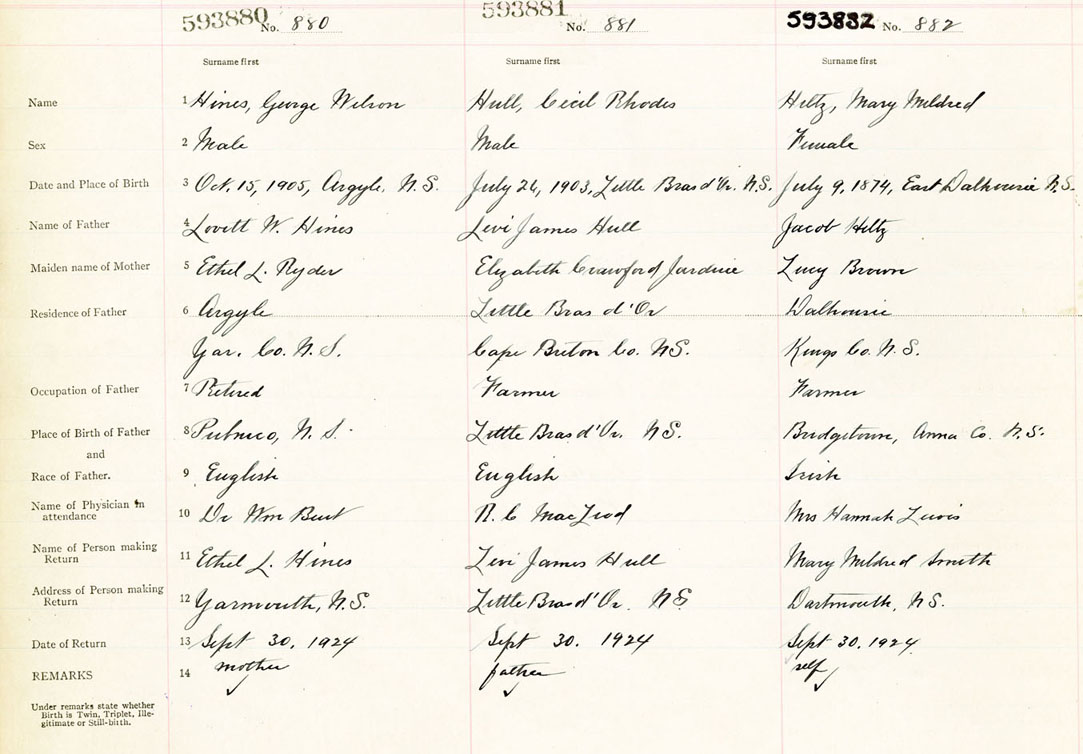 593880 No. 880 593881 No. 881 593882 No. 882
Surname first Surname first Surname first
Name 1 Hines, George Wilson Hull, Cecil Rhodes Hiltz, Mary Mildred
Sex 2 Male Male Female
Date and Place of Birth 3 Oct. 15, 1905, Argyle, N.S. July 26, 1903, Little Bras d'Or. N.S. July 9, 1874, East Dalhousie N.S.
Name of Father 4 Lovitt W. Hines Levi James Hull Jacob Hiltz
Maiden name of Mother 5 Ethel L. Ryder Elizabeth Crawford Jardine Lucy Brown
Residence of Father 6 Argyle Little Bras d'Or Dalhousie
Yar. Co. N.S. Cape Breton Co. NS. Kings Co. N.S.
Occupation of Father 7 Retired Farmer Farmer
Place of Birth of Father 8 Pubnico, N.S. Little Bras d'Or. NS. Bridgetown, Anna Co. N.S.
and
Race of Father. 9 English English Irish
Name of Physician in
attendance 10 Dr Wm N. C MacLeod Mrs Hannah Lewis
Name of Person making
Return 11 Ethel L. Hines Levi James Hull Mary Mildred Smith
Address of Person making
Return 12 Yarmouth, N.S. Little Bras d'Or. NS Dartmouth, NS.
Date of Return 13 Sept 30, 1924 Sept 30. 1924 Sept 30. 1924.
REMARKS 14 mother father self
Under remarks state whether
Birth is Twin, Triplet, Ille-
gitimate or Still-birth.